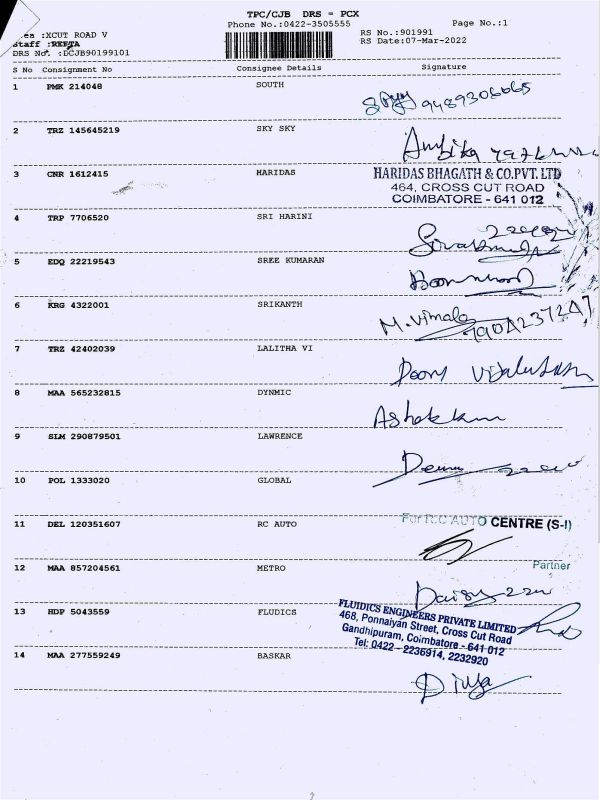 TPC/CJB DRS = PCX
Phone No.:0422-3505555 Page No.:1
:XCUT ROAD V RS No.:901991
Staff :REETA RS Date:07-Mar-2022
DRS No. :DCJB90199101
S No Consignment No Consignee Details Signature
1 PMK 214048 SOUTH 9489306065
2 TRZ 145645219 SKY SKY Ambika
3 CNR 1612415 HARIDAS HARIDAS BHAGATH & CO.PVT. LTD
464, CROSS CUT ROAD
COIMBATORE - 641 012
4 TRP 7706520 SRI HARINI
5 EDQ 22219543 SREE KUMARAN
6 KRG 4322001 SRIKANTH M.Vimala
7 TRZ 42402039 LALITHA VI
8 MAA 565232815 DYNMIC
9 SLM 290879501 LAWRENCE
10 POL 1333020 GLOBAL
11 DEL 120351607 RC AUTO For R.C AUTO CENTRE (S-I)
Partner
12 MAA 857204561 METRO
13 HDP 5043559 FLUDICS FLUIDICS ENGINEERS PRIVATE LIMITED
468, Ponnaiyan Street, Cross Cut Road
Gandhipuram, Coimbatore - 641 012
Tel: 0422 - 2236914, 2232920
14 MAA 277559249 BASKAR Divya